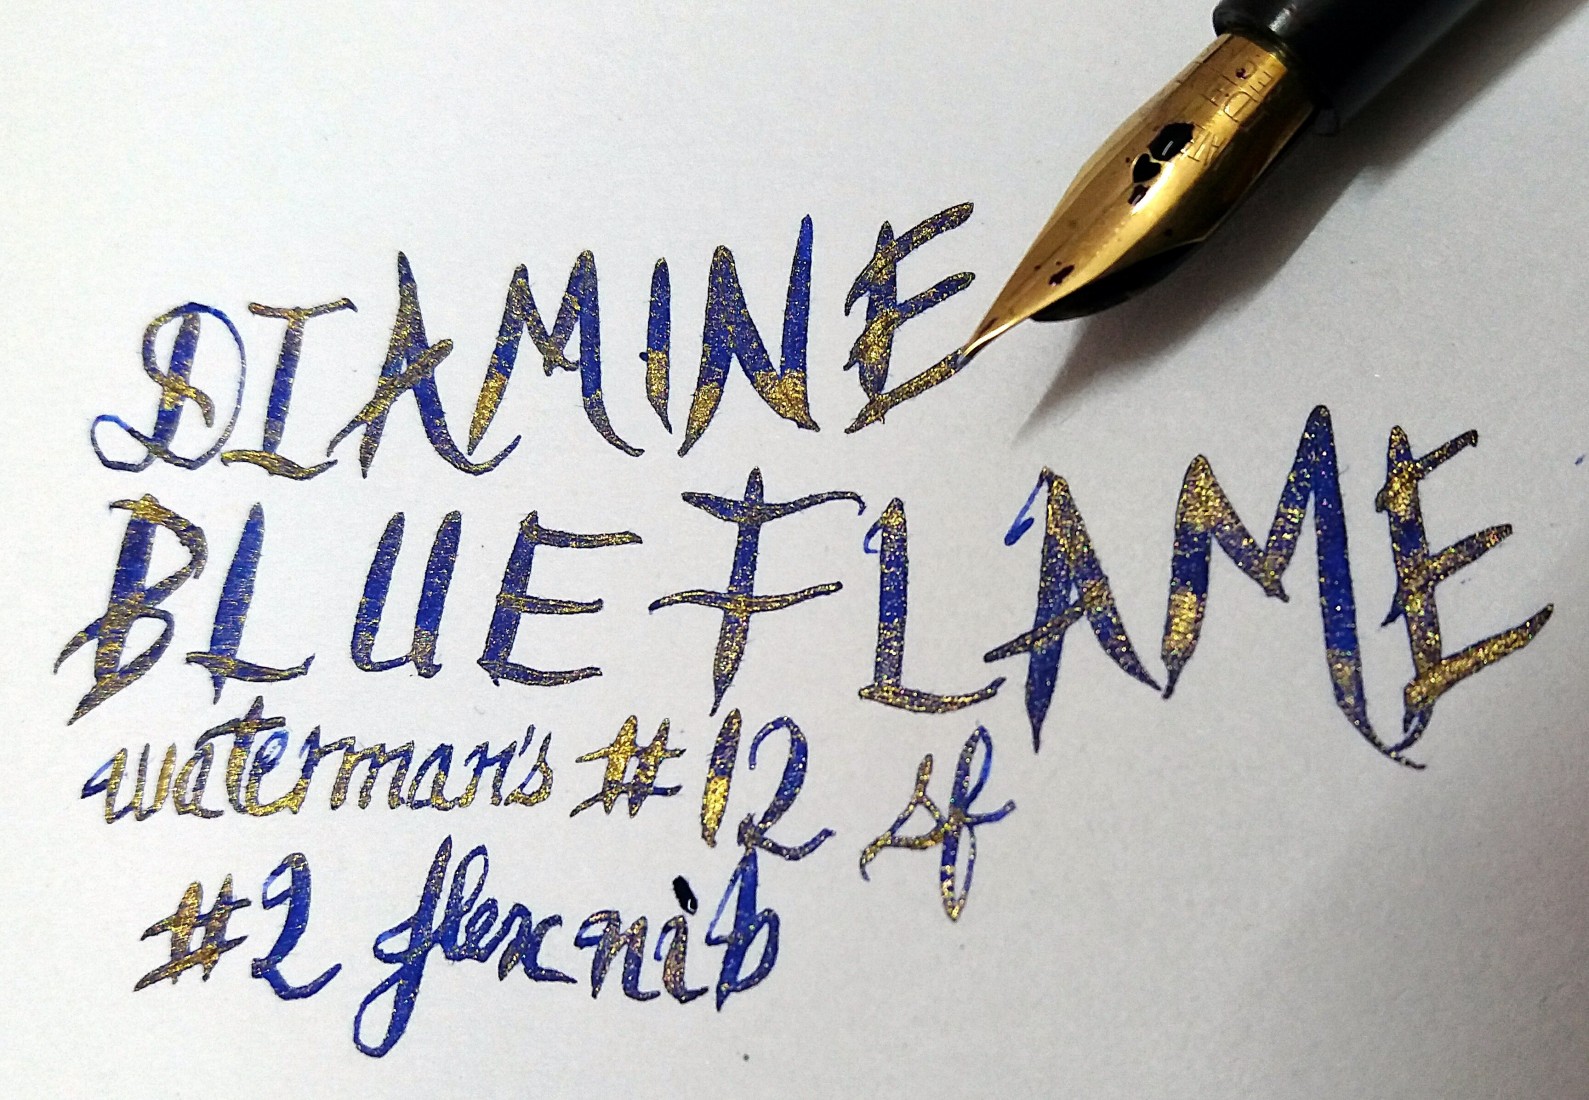 DIAMINE
BLUE FLAME
waterman's #12 sf
#2 flex nib